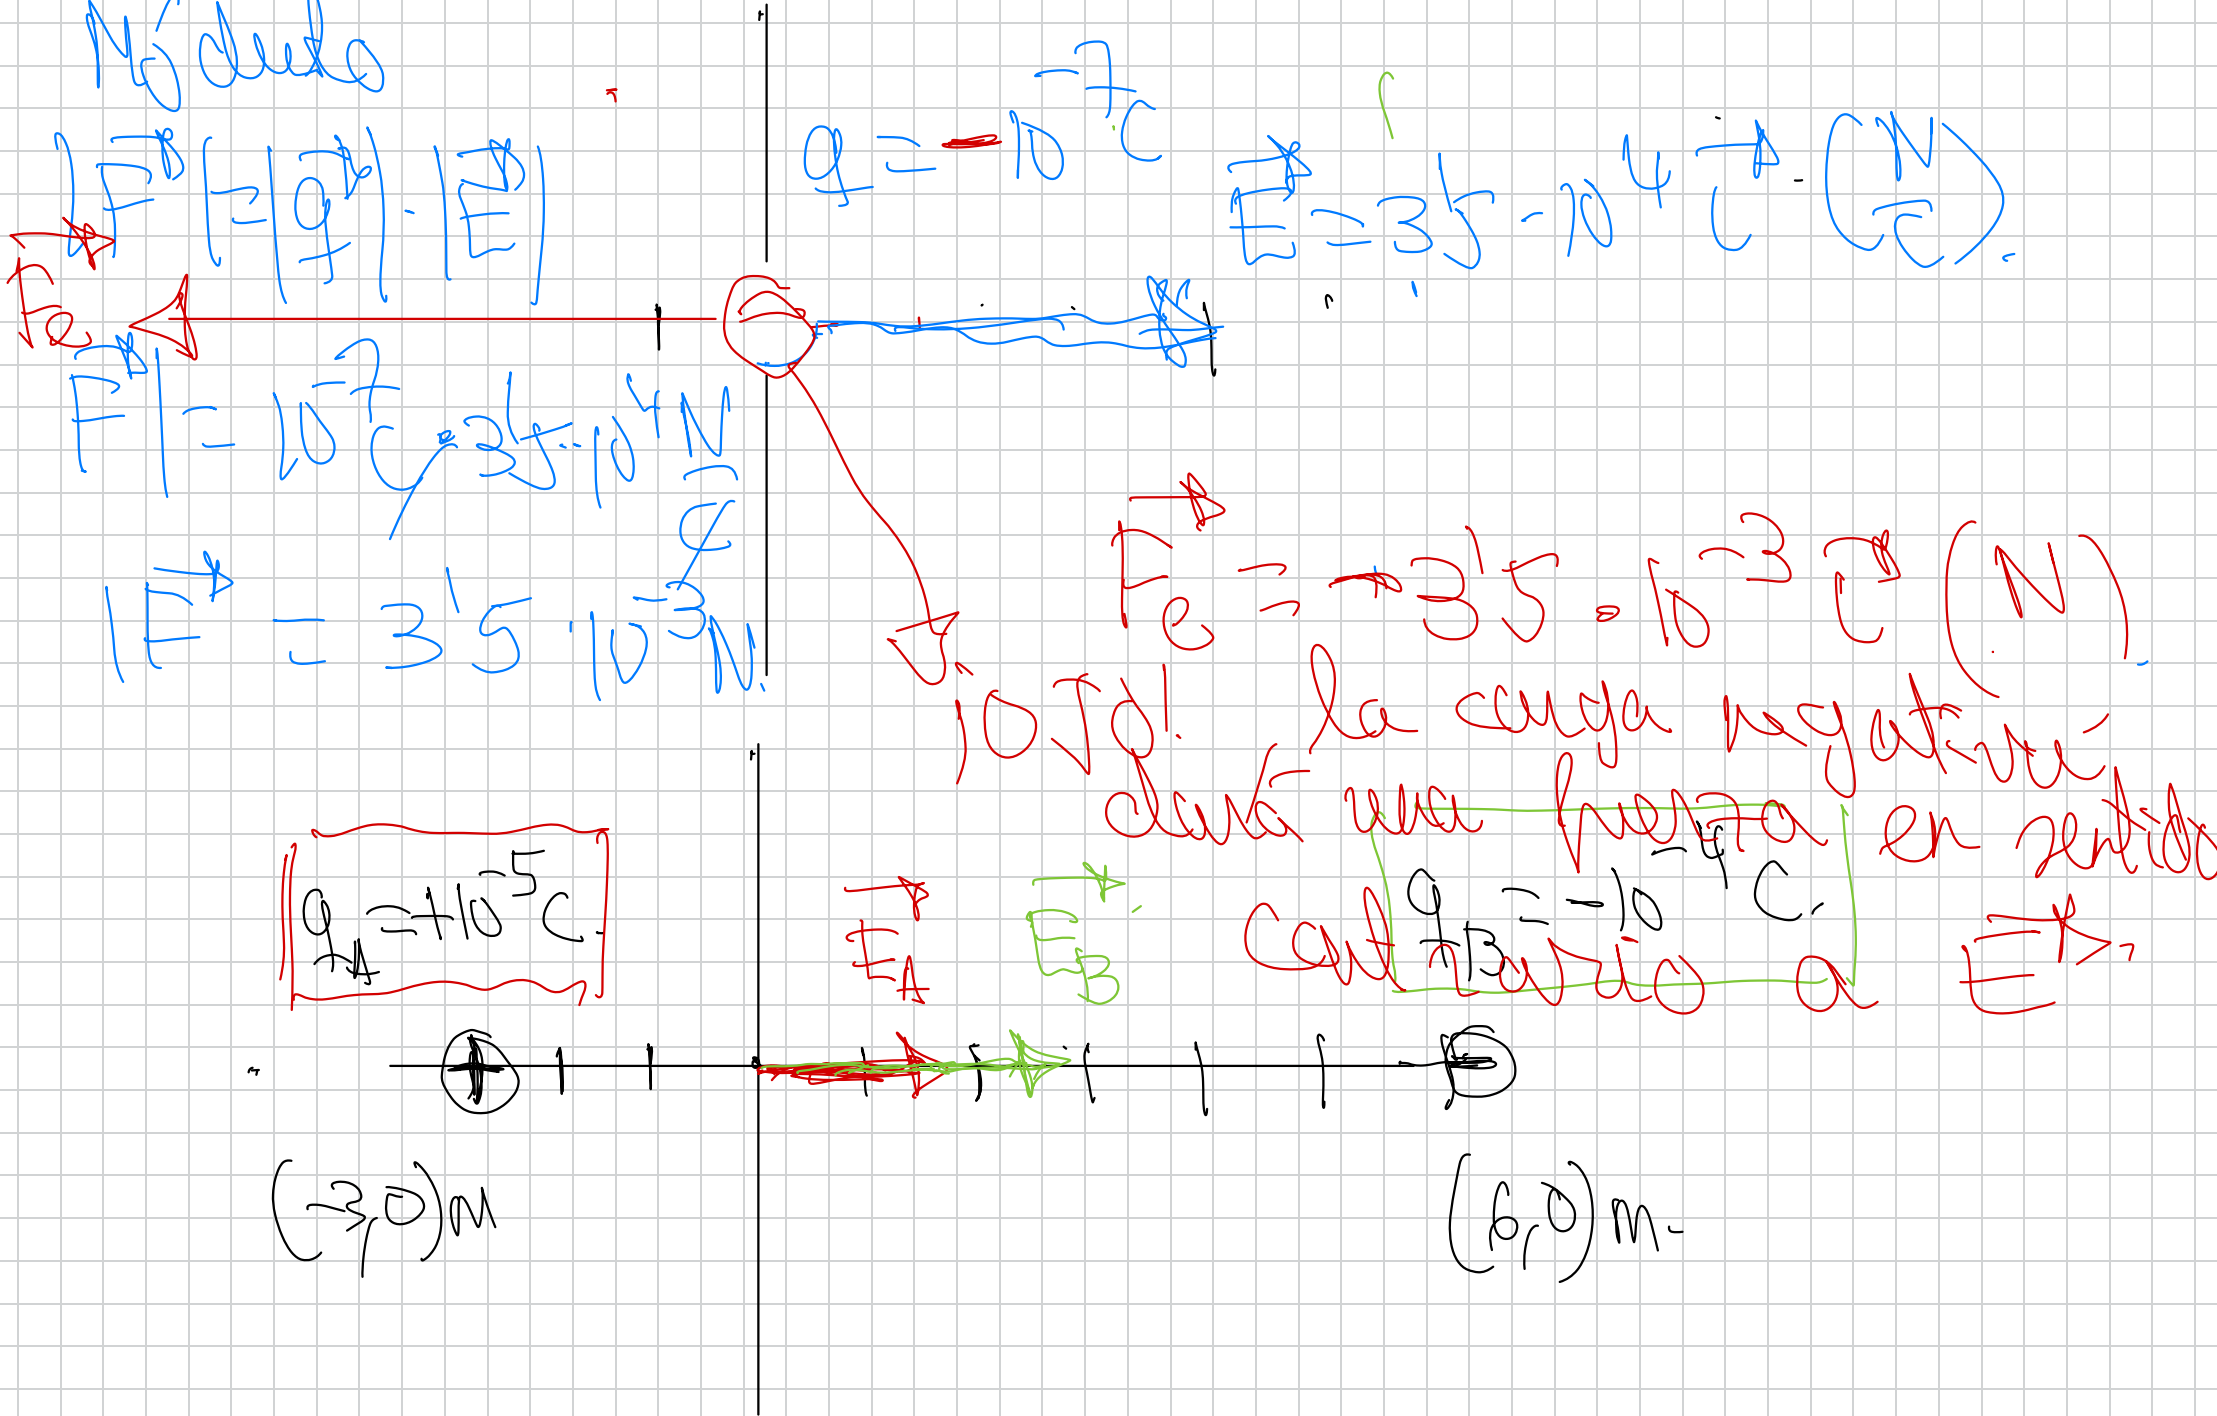 Módulo
|F⃗| = |q⃗| · |E⃗|
q = -10⁻⁷ C
E⃗ = 3'5 · 10⁴ i⃗ (N/C).
F⃗e
|F⃗| = 10⁻⁷ C · 3'5 · 10⁴ N/C
|F⃗| = 3'5 · 10⁻³ N.
F⃗e = -3'5 · 10⁻³ i⃗ (N).
¡OJO! la carga negativa
dará una fuerza en sentido
contrario a E⃗.
q_A = +10⁻⁵ C.
E⃗_A
E⃗_B
q_B = -10⁻⁴ C.
(-3,0) m
(6,0) m.